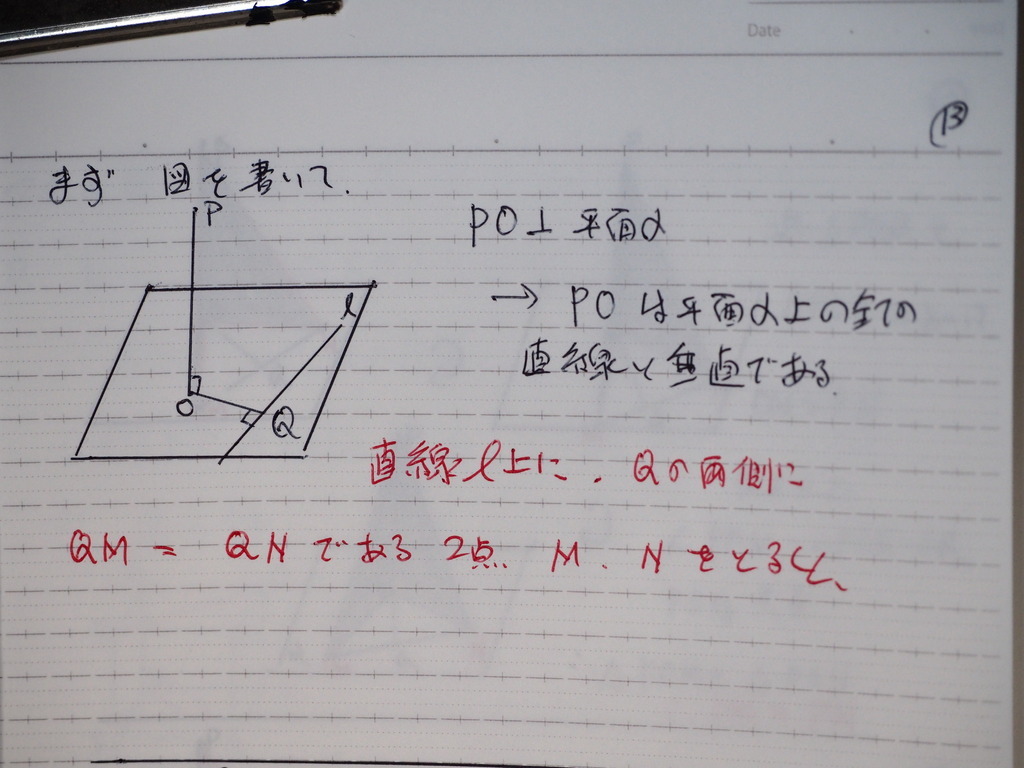 Date
⑬
まず 図を書いて.
P
PO⊥平面α
l
→ POは平面α上の全ての
直線と垂直である
O
Q
直線l上に. Qの両側に
QM = QNである 2点 M. N をとると、